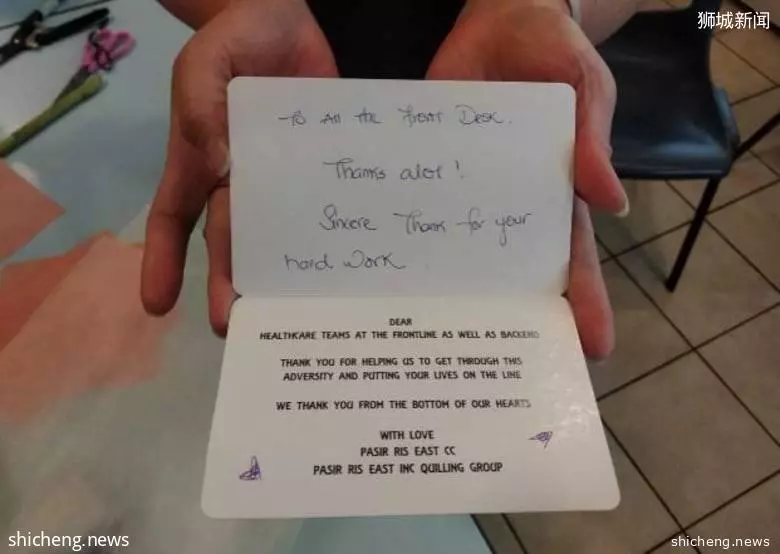 狮城新闻
To All the Front Desk.
Thanks alot!
Sincere Thank for your
hard work
DEAR
HEALTHKARE TEAMS AT THE FRONTLINE AS WELL AS BACKEND
THANK YOU FOR HELPING US TO GET THROUGH THIS
ADVERSITY AND PUTTING YOUR LIVES ON THE LINE
WE THANK YOU FROM THE BOTTOM OF OUR HEARTS
WITH LOVE
PASIR RIS EAST CC
PASIR RIS EAST INC QUILLING GROUP
shicheng.news
shicheng.news